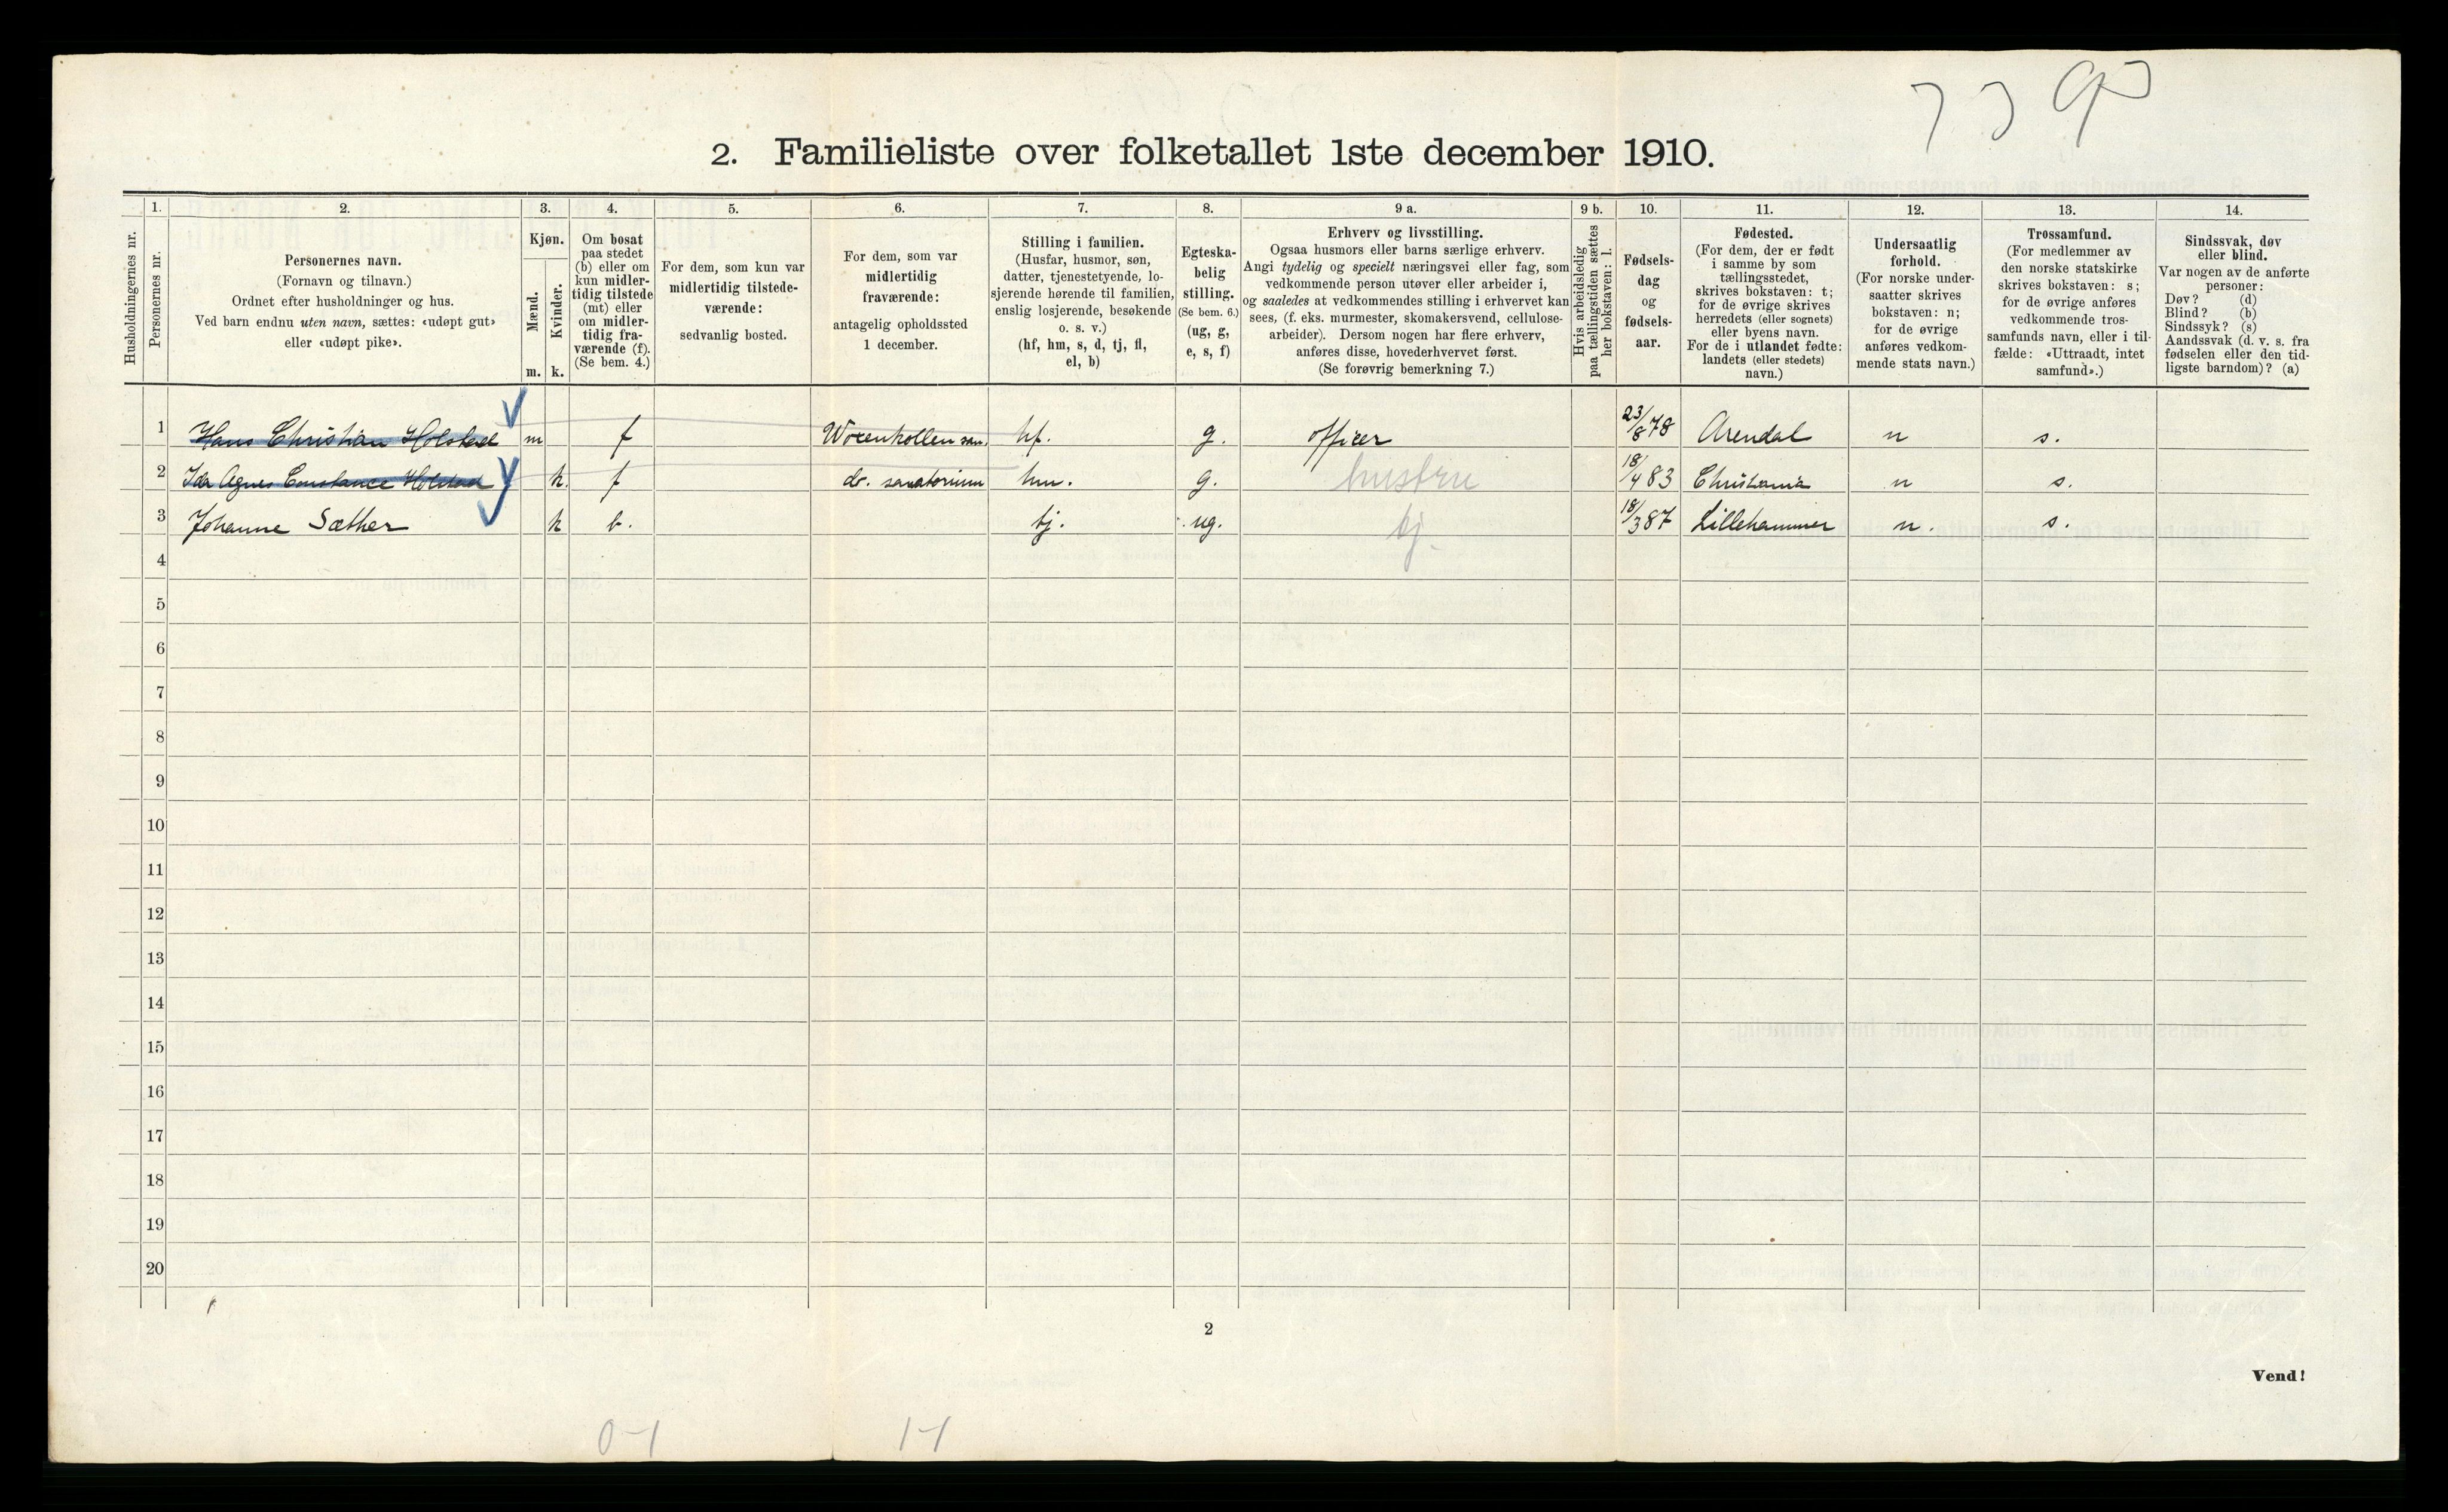 2. Familieliste over folketallet 1ste december 1910.
Husholdningernes nr.
1. Personernes nr.
2. Personernes navn.
(Fornavn og tilnavn.)
Ordnet efter husholdninger og hus.
Ved barn endnu uten navn, sættes: «udøpt gut»
eller «udøpt pike».
3. Kjøn.
Mænd. m.
Kvinder. k.
4. Om bosat
paa stedet
(b) eller om
kun midler-
tidig tilstede
(mt) eller
om midler-
tidig fra-
værende (f).
(Se bem. 4.)
5. For dem, som kun var
midlertidig tilstede-
værende:
sedvanlig bosted.
6. For dem, som var
midlertidig
fraværende:
antagelig opholdssted
1 december.
7. Stilling i familien.
(Husfar, husmor, søn,
datter, tjenestetyende, lo-
sjerende hørende til familien,
enslig losjerende, besøkende
o. s. v.)
(hf, hm, s, d, tj, fl,
el, b)
8. Egteska-
belig
stilling.
(Se bem. 6.)
(ug, g,
e, s, f)
9 a. Erhverv og livsstilling.
Ogsaa husmors eller barns særlige erhverv.
Angi tydelig og specielt næringsvei eller fag, som
vedkommende person utøver eller arbeider i,
og saaledes at vedkommendes stilling i erhvervet kan
sees, (f. eks. murmester, skomakersvend, cellulose-
arbeider). Dersom nogen har flere erhverv,
anføres disse, hovederhvervet først.
(Se forøvrig bemerkning 7.)
9 b. Hvis arbeidsledig
paa tællingstiden sættes
her bokstaven: l.
10. Fødsels-
dag
og
fødsels-
aar.
11. Fødested.
(For dem, der er født
i samme by som
tællingsstedet,
skrives bokstaven: t;
for de øvrige skrives
herredets (eller sognets)
eller byens navn.
For de i utlandet fødte:
landets (eller stedets)
navn.)
12. Undersaatlig
forhold.
(For norske under-
saatter skrives
bokstaven: n;
for de øvrige
anføres vedkom-
mende stats navn.)
13. Trossamfund.
(For medlemmer av
den norske statskirke
skrives bokstaven: s;
for de øvrige anføres
vedkommende tros-
samfunds navn, eller i til-
fælde: «Uttraadt, intet
samfund».)
14. Sindssvak, døv
eller blind.
Var nogen av de anførte
personer:
Døv? (d)
Blind? (b)
Sindssyk? (s)
Aandssvak (d. v. s. fra
fødselen eller den tid-
ligste barndom)? (a)
1 Hans Christian Holstad m f Voxenkollen san. hf. g. officer 23/8 78 Arendal n s.
2 Ida Agnes Constance Holstad k. f do. sanatorium hm. g. hustru 18/4 83 Christiania n s.
3 Johanne Sæther k b. tj. ug. tj. 18/3 87 Lillehammer n. s.
4
5
6
7
8
9
10
11
12
13
14
15
16
17
18
19
20
2
Vend!
0-1 1-1